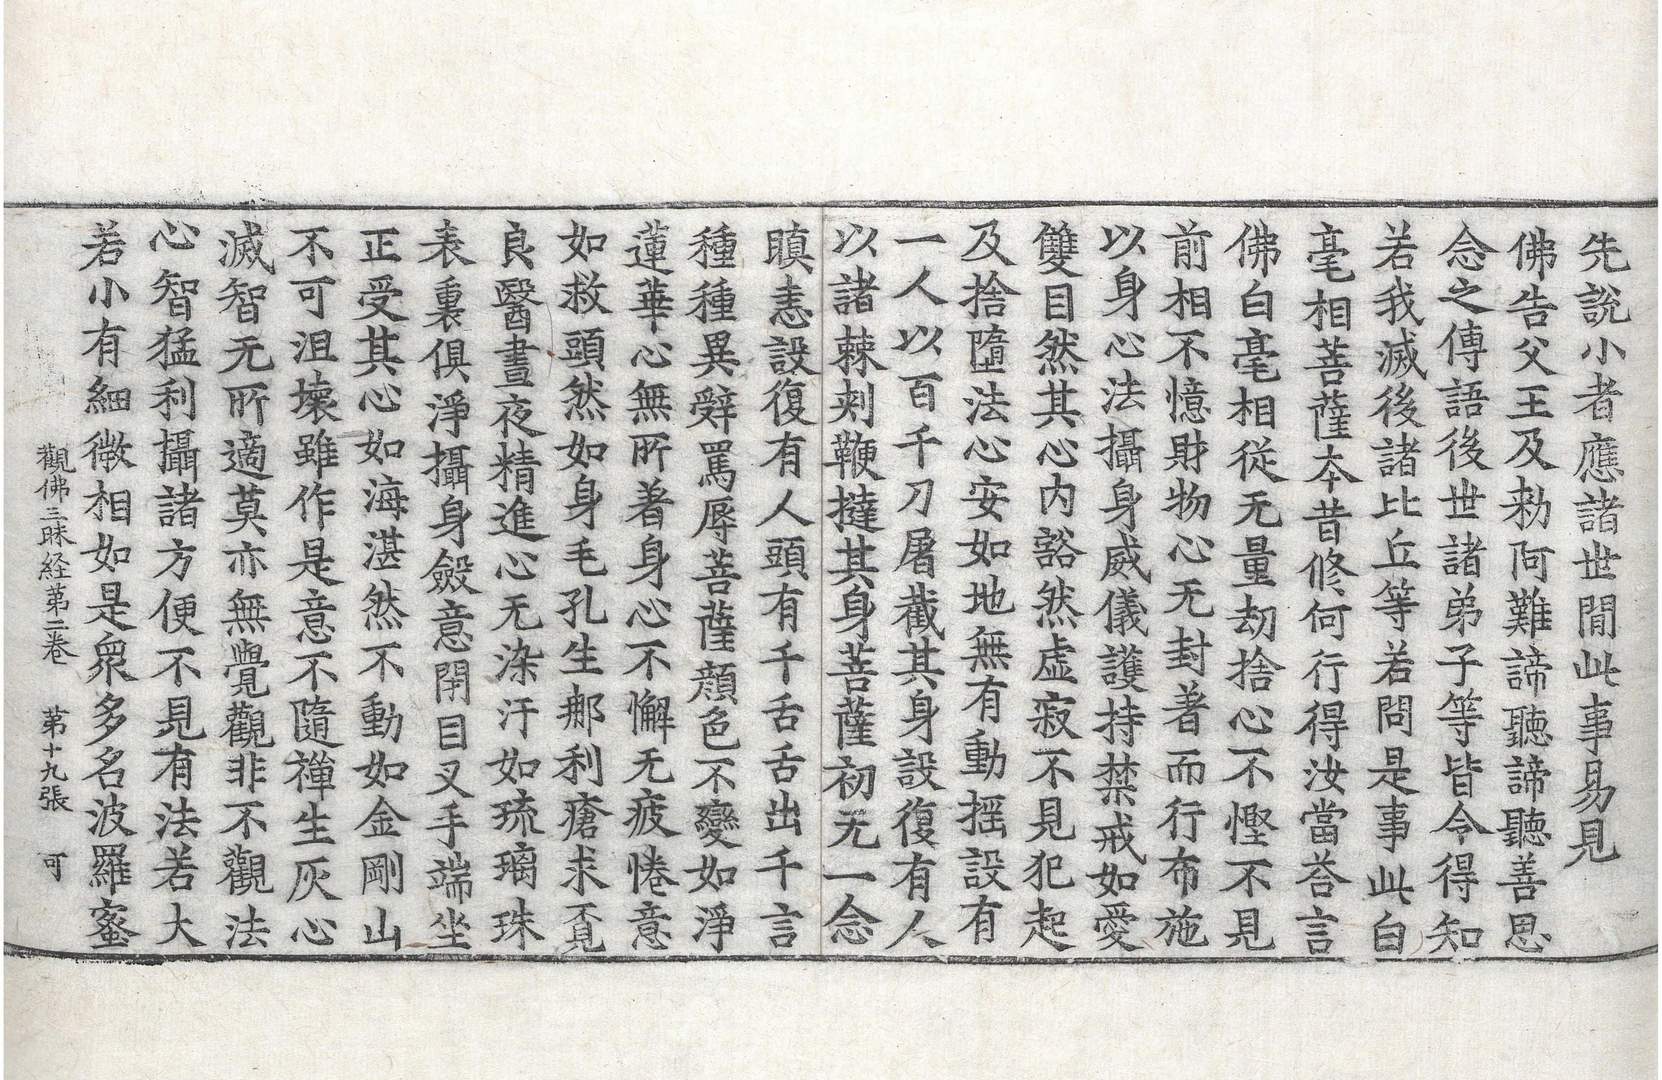 先說小者應諸世間此事易見
佛告父王及勑阿難諦聽諦聽善思
念之傳語後世諸弟子等皆令得知
若我滅後諸比丘等若問是事此白
毫相菩薩本昔修何行得汝當荅言
佛白毫相從无量劫捨心不慳不見
前相不憶財物心无封著而行布施
以身心法攝身威儀護持禁戒如愛
雙目然其心內豁然虛寂不見犯起
及捨墮法心安如地無有動搖設有
一人以百千刀屠截其身設復有人
以諸棘刾鞭撻其身菩薩初无一念
瞋恚設復有人頭有千舌舌出千言
種種異辤罵辱菩薩顔色不變如淨
蓮華心無所著身心不懈无疲惓意
如救頭然如身毛孔生郍利瘡求覓
良醫晝夜精進心无染汙如琉璃珠
表裏俱淨攝身斂意閇目叉手端坐
正受其心如海湛然不動如金剛山
不可沮壞雖作是意不隨禪生灰心
滅智无所適莫亦無覺觀非不觀法
心智猛利攝諸方便不見有法若大
若小有細微相如是衆多名波羅蜜
觀佛三昧経第二卷　第十九張　可